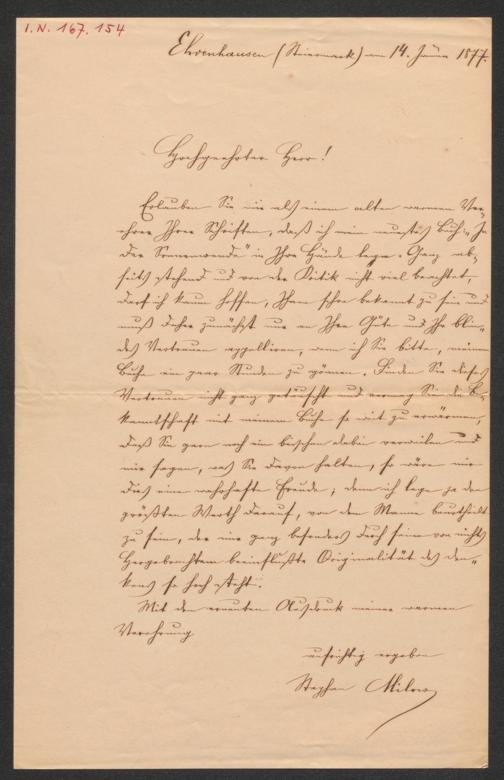 I.N. 167.154
Ehrenhausen (Steiermark) am 14. Juni 1877.
Hochgeehrter Herr!
Erlauben Sie mir als einem alten warmen Ver-
ehrer Ihrer Schriften, daß ich mein neustes Buch „In
der Sonnenwende" in Ihre Hände lege. Ganz ab-
seits stehend und von der Kritik nicht viel beachtet,
darf ich kaum hoffen, Ihnen schon bekannt zu sein und
muß daher zunächst nur an Ihre Güte und Ihr blin-
des Vertrauen appelliren, wenn ich Sie bitte, meinem
Buche ein paar Stunden zu gönnen. Finden Sie dieses
Vertrauen nicht ganz getäuscht und vermag Sie die Be-
kanntschaft mit meinem Buche so weit zu erwärmen,
daß Sie gern noch ein bischen dabei verweilen und
mir sagen, was Sie davon halten, so wäre mir
dies eine wahrhafte Freude; denn ich lege ja den
größten Werth darauf, von dem Manne beurtheilt
zu sein, der mir ganz besonders durch seine von nichts
Hergebrachtem beeinflußte Originalität des Den-
kens so hoch steht.
Mit dem erneuten Ausdruck meiner warmen
Verehrung
aufrichtig ergeben
Stephan Milow